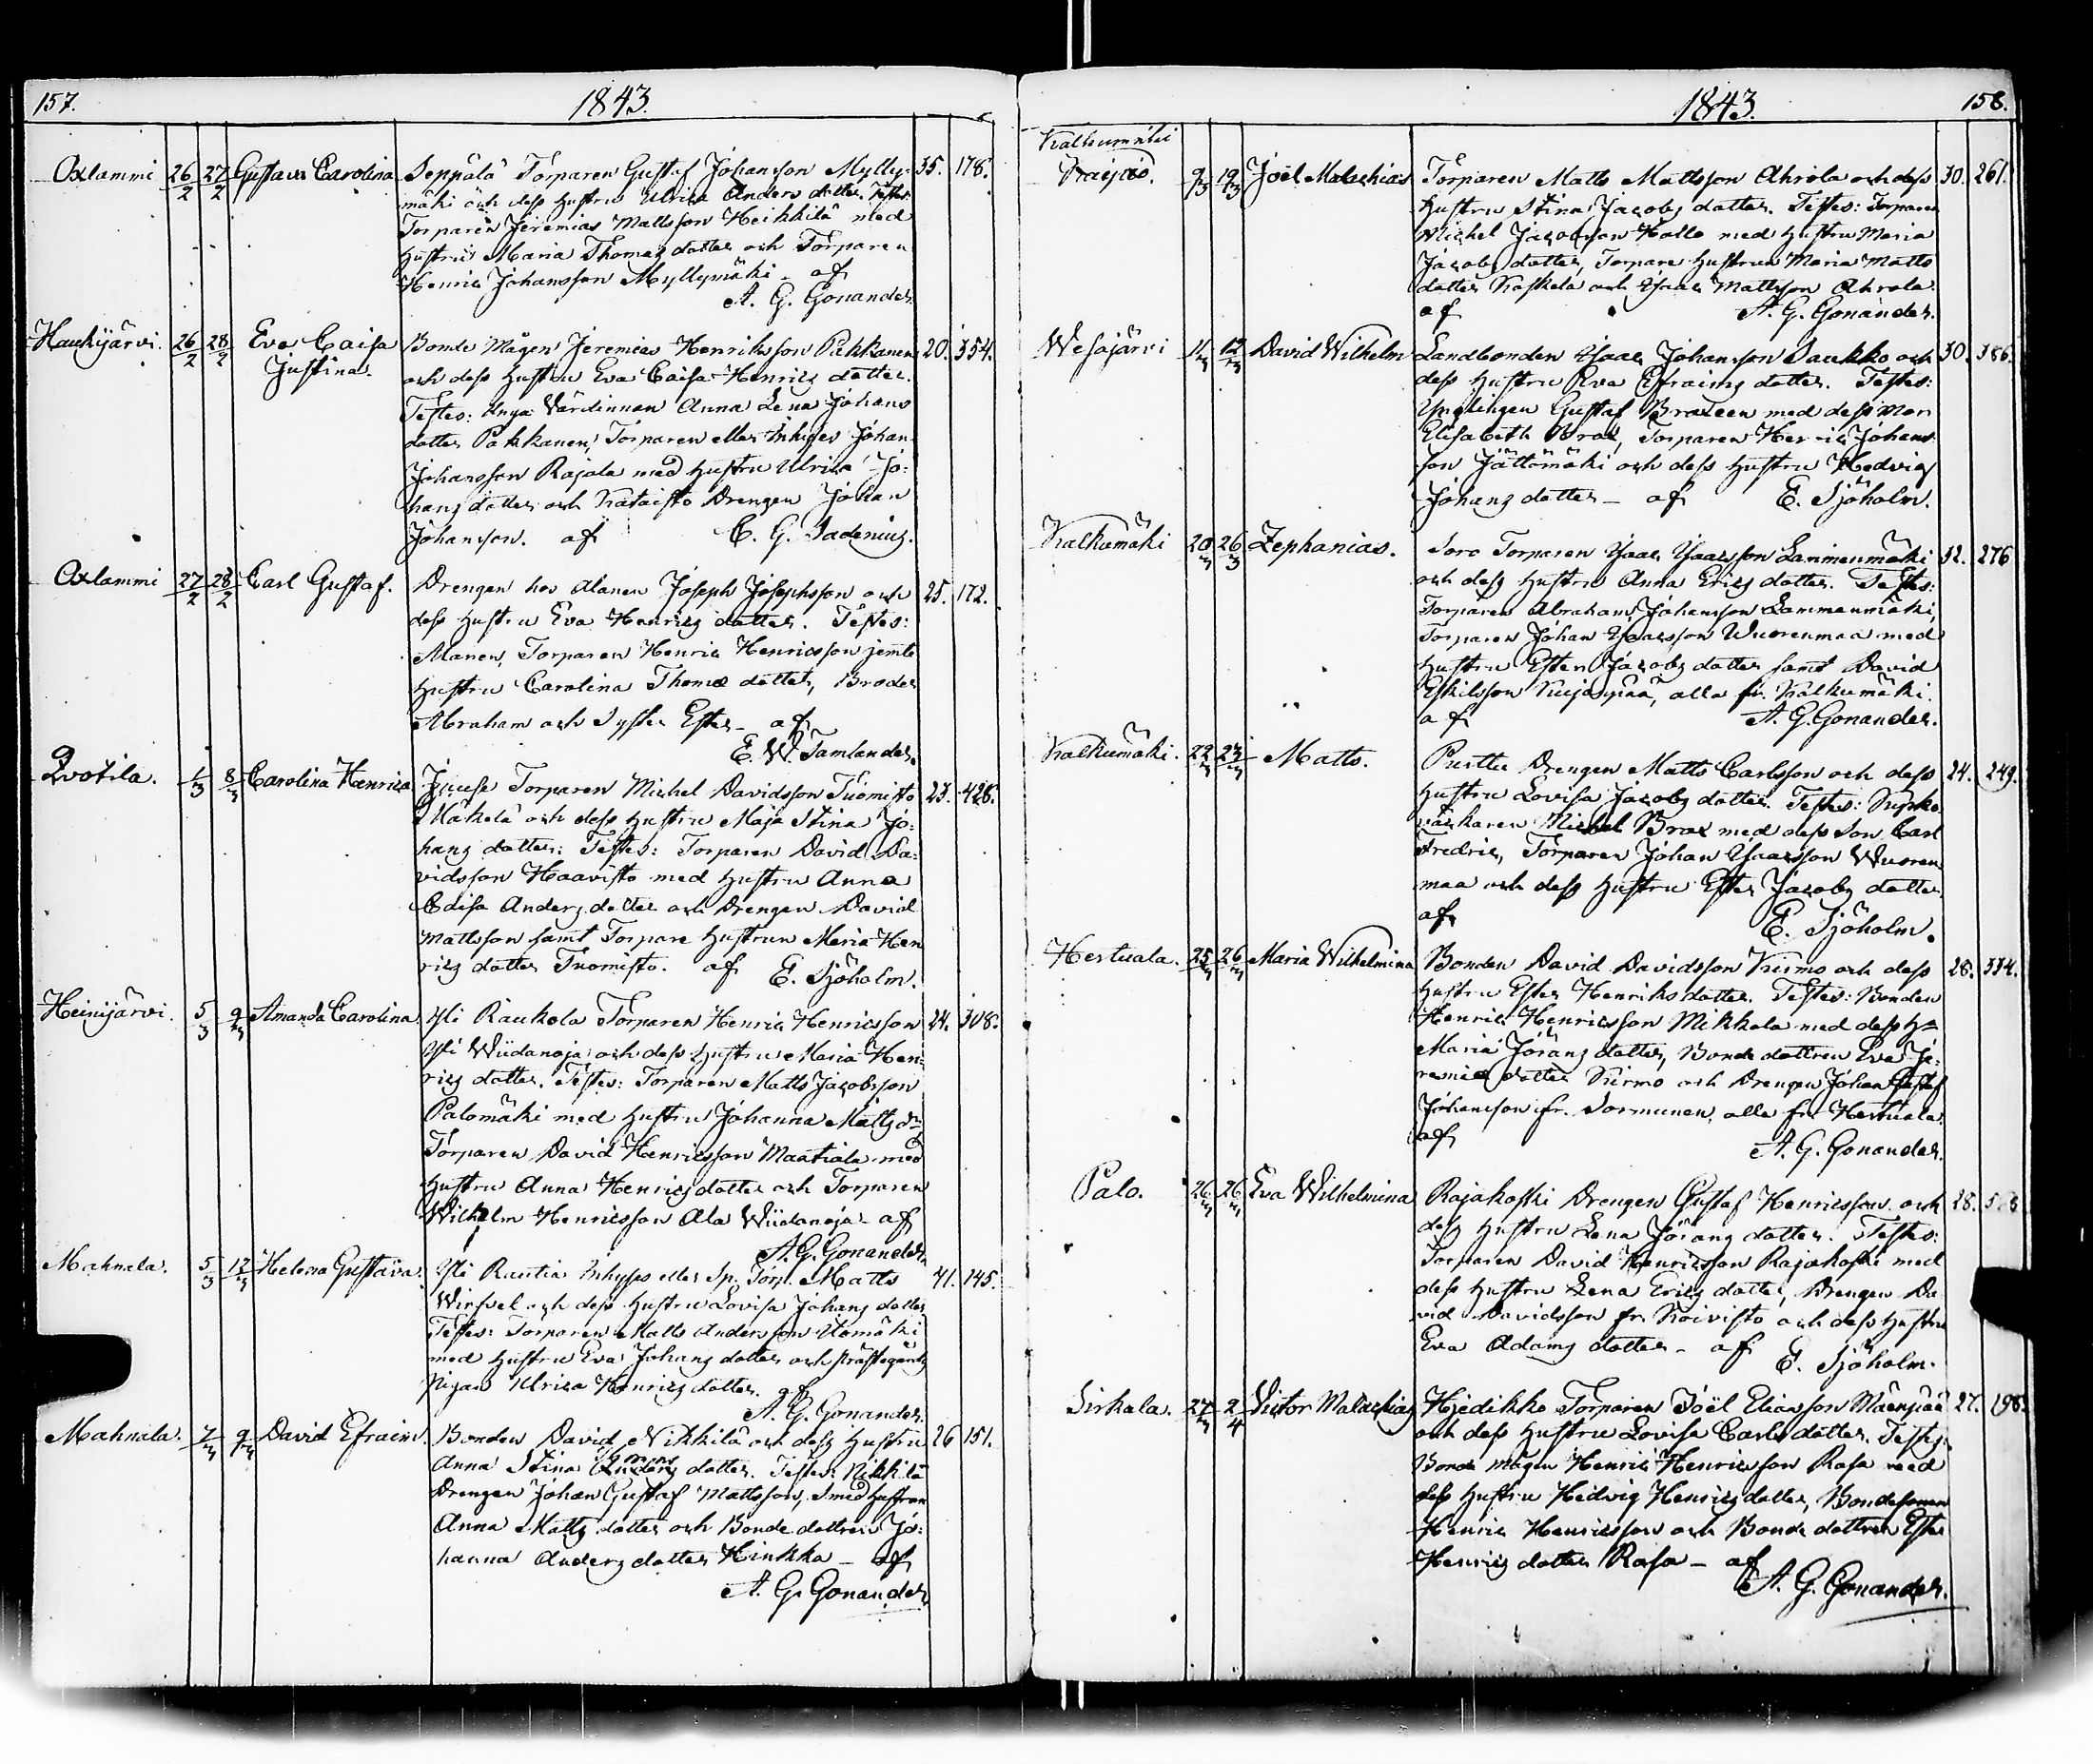 157.
1843.
Oxlammi 26/2 27/2 Gustava Carolina Seppälä Torparen Gustaf Johansson Mylly- 35. 178.
mäki och dess hustru Ulrica Anders dotter. Testes:
Torparen Jeremias Mattsson Heikkilä med
hustru Maria Thomas dotter och Torparen
Henric Johansson Myllymäki - af
A. G. Gonander.
Haukijärvi. 26/2 28/2 Eva Caisa Bonde Mågen Jeremias Henriksson Pakkanen 20. 354.
Justina. och dess hustru Eva Caisa Henrics dotter.
Testes: Unga Värdinnan Anna Lena Johans
dotter Pakkanen, Torparen eller Inhyses Johan
Johansson Rajala med hustru Ulrica Jo:
hans dotter och Kataisto Drengen Johan
Johansson. af C. G. Sadenius.
Oxlammi 27/2 28/2 Carl Gustaf. Drengen hos Alanen Joseph Josephsson och 25. 172.
dess hustru Eva Henrics dotter. Testes:
Alanen, Torparen Henric Henricsson jemte
hustru Carolina Thomæ dotter, Broder
Abraham och Syster Ester - af
E. W. Tamlander.
Qvotila. 1/3 8/3 Carolina Henrica Torparen Michel Davidsson Tuomisto 23. 428.
Mäkelä och dess hustru Maja Stina Jo:
hans dotter: Testes: Torparen David Da:
vidsson Haavisto med hustru Anna
Caisa Anders dotter och Drengen David
Mattsson samt Torpare hustrun Maria Hen
rics dotter Tuomisto. af E. Sjöholm.
Heinijärvi. 5/3 9/3 Amanda Carolina. Yli Raukola Torparen Henric Henricsson 24. 308.
Yli Wiidanoja och dess hustru Maria Hen:
rics dotter. Testes: Torparen Matts Jacobsson
Palomäki med hustru Johanna Matts dr
Torparen David Henricsson Maatiala med
hustru Anna Henrics dotter och Torparen
Wilhelm Henricsson Ala Wiidanoja - af
A. G. Gonander.
Mahnala. 5/3 12/3 Helena Gustava. Yli Rautia Inhyses eller Sp. Torp. Matts 41. 145.
och dess hustru Lovisa Johans dotter
Testes: Torparen Matts Andersson
med hustru Eva Johans dotter och Prästegårds
Pigan Ulrica Henrics dotter. af
A. G. Gonander.
Mahnala. 7/3 9/3 David Efraim. Bonden David Nikkilä och dess hustru 26 151.
Anna Stina dotter. Testes: Nikkilä
Drengen Johan Gustaf Mattsson, Smed hustrun
Anna Matts dotter och Bonde dottren Jo:
hanna Anders dotter Hinkka - af
A. G. Gonander
1843.
158.
Kalkunmäki
9/3 19/3 Joël Malachias Torparen Matts Mattsson Ahrola och dess 30. 261.
hustru Stina Jacobs dotter. Testes: Torparen
Michel Jacobsson Hollo med hustru Maria
Jacobs dotter, Torpare hustrun Maria Matts
dotter Koskela och Isaac Mattsson Ahrola.
af A. G. Gonander.
Wesajärvi 11/3 12/3 David Wilhelm Landbonden Isaac Johansson Saukko och 30. 386.
dess hustru Eva Efraims dotter. Testes:
Ynglingen Gustaf Braxeen med dess Mor
Elisabeth Brax, Torparen Henric Johans
son Jättömäki och dess hustru Hedvig
Johans dotter - af E. Sjöholm.
Kalkumäki 20/3 26/3 Zephanias. Soro Torparen Isaac Isaacsson Lammenmäki 32. 276
och dess hustru Anna Erics dotter. Testes:
Torparen Abraham Johansson Lammenmäki,
Torparen Johan Isaacsson Wuorenmaa med
hustru Ester Jacobs dotter samt David
Eskilsson Kujanpää, alla fr. Kalkumäki.
af A. G. Gonander.
Kalkumäki. 22/3 23/3 Matts. Drengen Matts Carlsson och dess 24. 249.
hustru Lovisa Jacobs dotter. Testes: Kyrko
väktaren Michel Brax med dess Son Carl
Fredric, Torparen Johan Isaacsson Wuoren
maa och dess hustru Ester Jacobs dotter.
af E. Sjöholm.
Hertuala. 25/3 26/3 Maria Wilhelmina Bonden David Davidsson Kirmo och dess 28. 334.
hustru Ester Henriks dotter. Testes: Bonden
Henric Henricsson Mikkola med dess h=
Maria Jörans dotter, Bonde dottren Eva Je:
remiæ dotter Kirmo och Drengen Johan Gustaf
Johansson fr. Sormunen, alla fr. Hertuala
af A. G. Gonander.
Palo. 26/3 26/3 Eva Wilhelmina Rajakoski Drengen Gustaf Henricsson och 28.
dess hustru Lena Jörans dotter. Testes:
Torparen David Henricsson Rajakoski med
dess hustru Lena Erics dotter, Drengen Da
vid Davidsson fr. Koivisto och dess hustru
Eva Adams dotter - af E. Sjöholm.
Sirkala. 27/3 2/4 Victor Malachias Hjedikko Torparen Joël Eliasson Mäenpää 27. 198.
och dess hustru Lovisa Carls dotter. Testes:
Bonde mågen Henric Henricsson Rasa med
dess hustru Hedvig Henrics dotter, Bondesonen
Henric Henricsson och Bonde dottren Ester
Henrics dotter Rasa - af
A. G. Gonander.